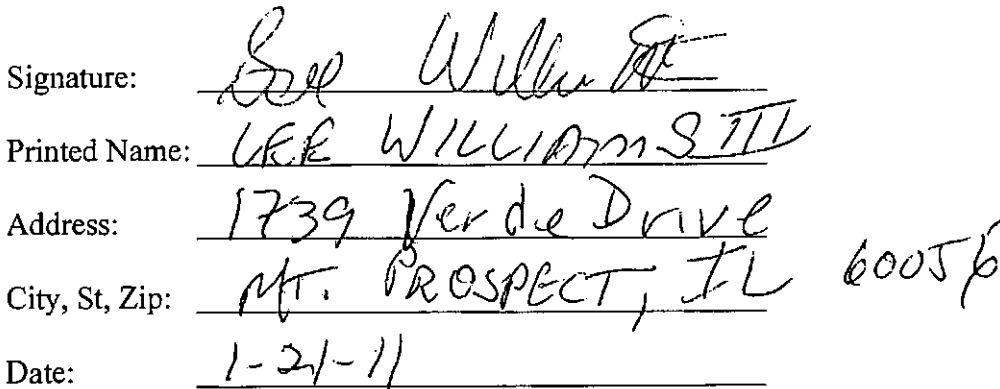 Signature: Lee Willi III
Printed Name: LEE WILLIAMS III
Address: 1739 Verde Drive
City, St, Zip: MT. PROSPECT, IL 60056
Date: 1-21-11